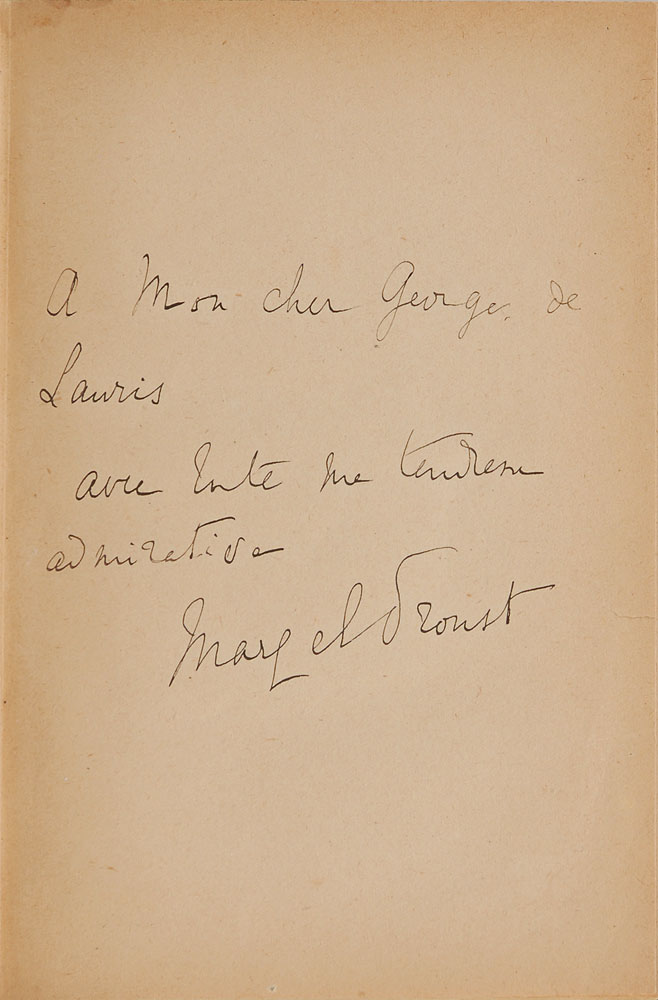 A Mon cher Georges de
Lauris
avec toute ma tendresse
admirative
Marcel Proust